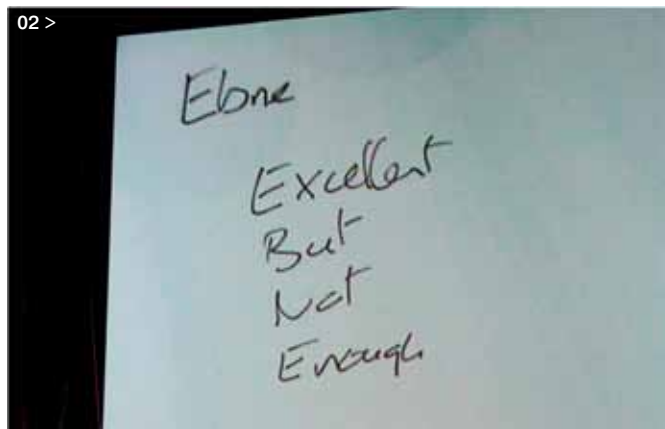 02 >
Ebne
Excellent
But
Not
Enough